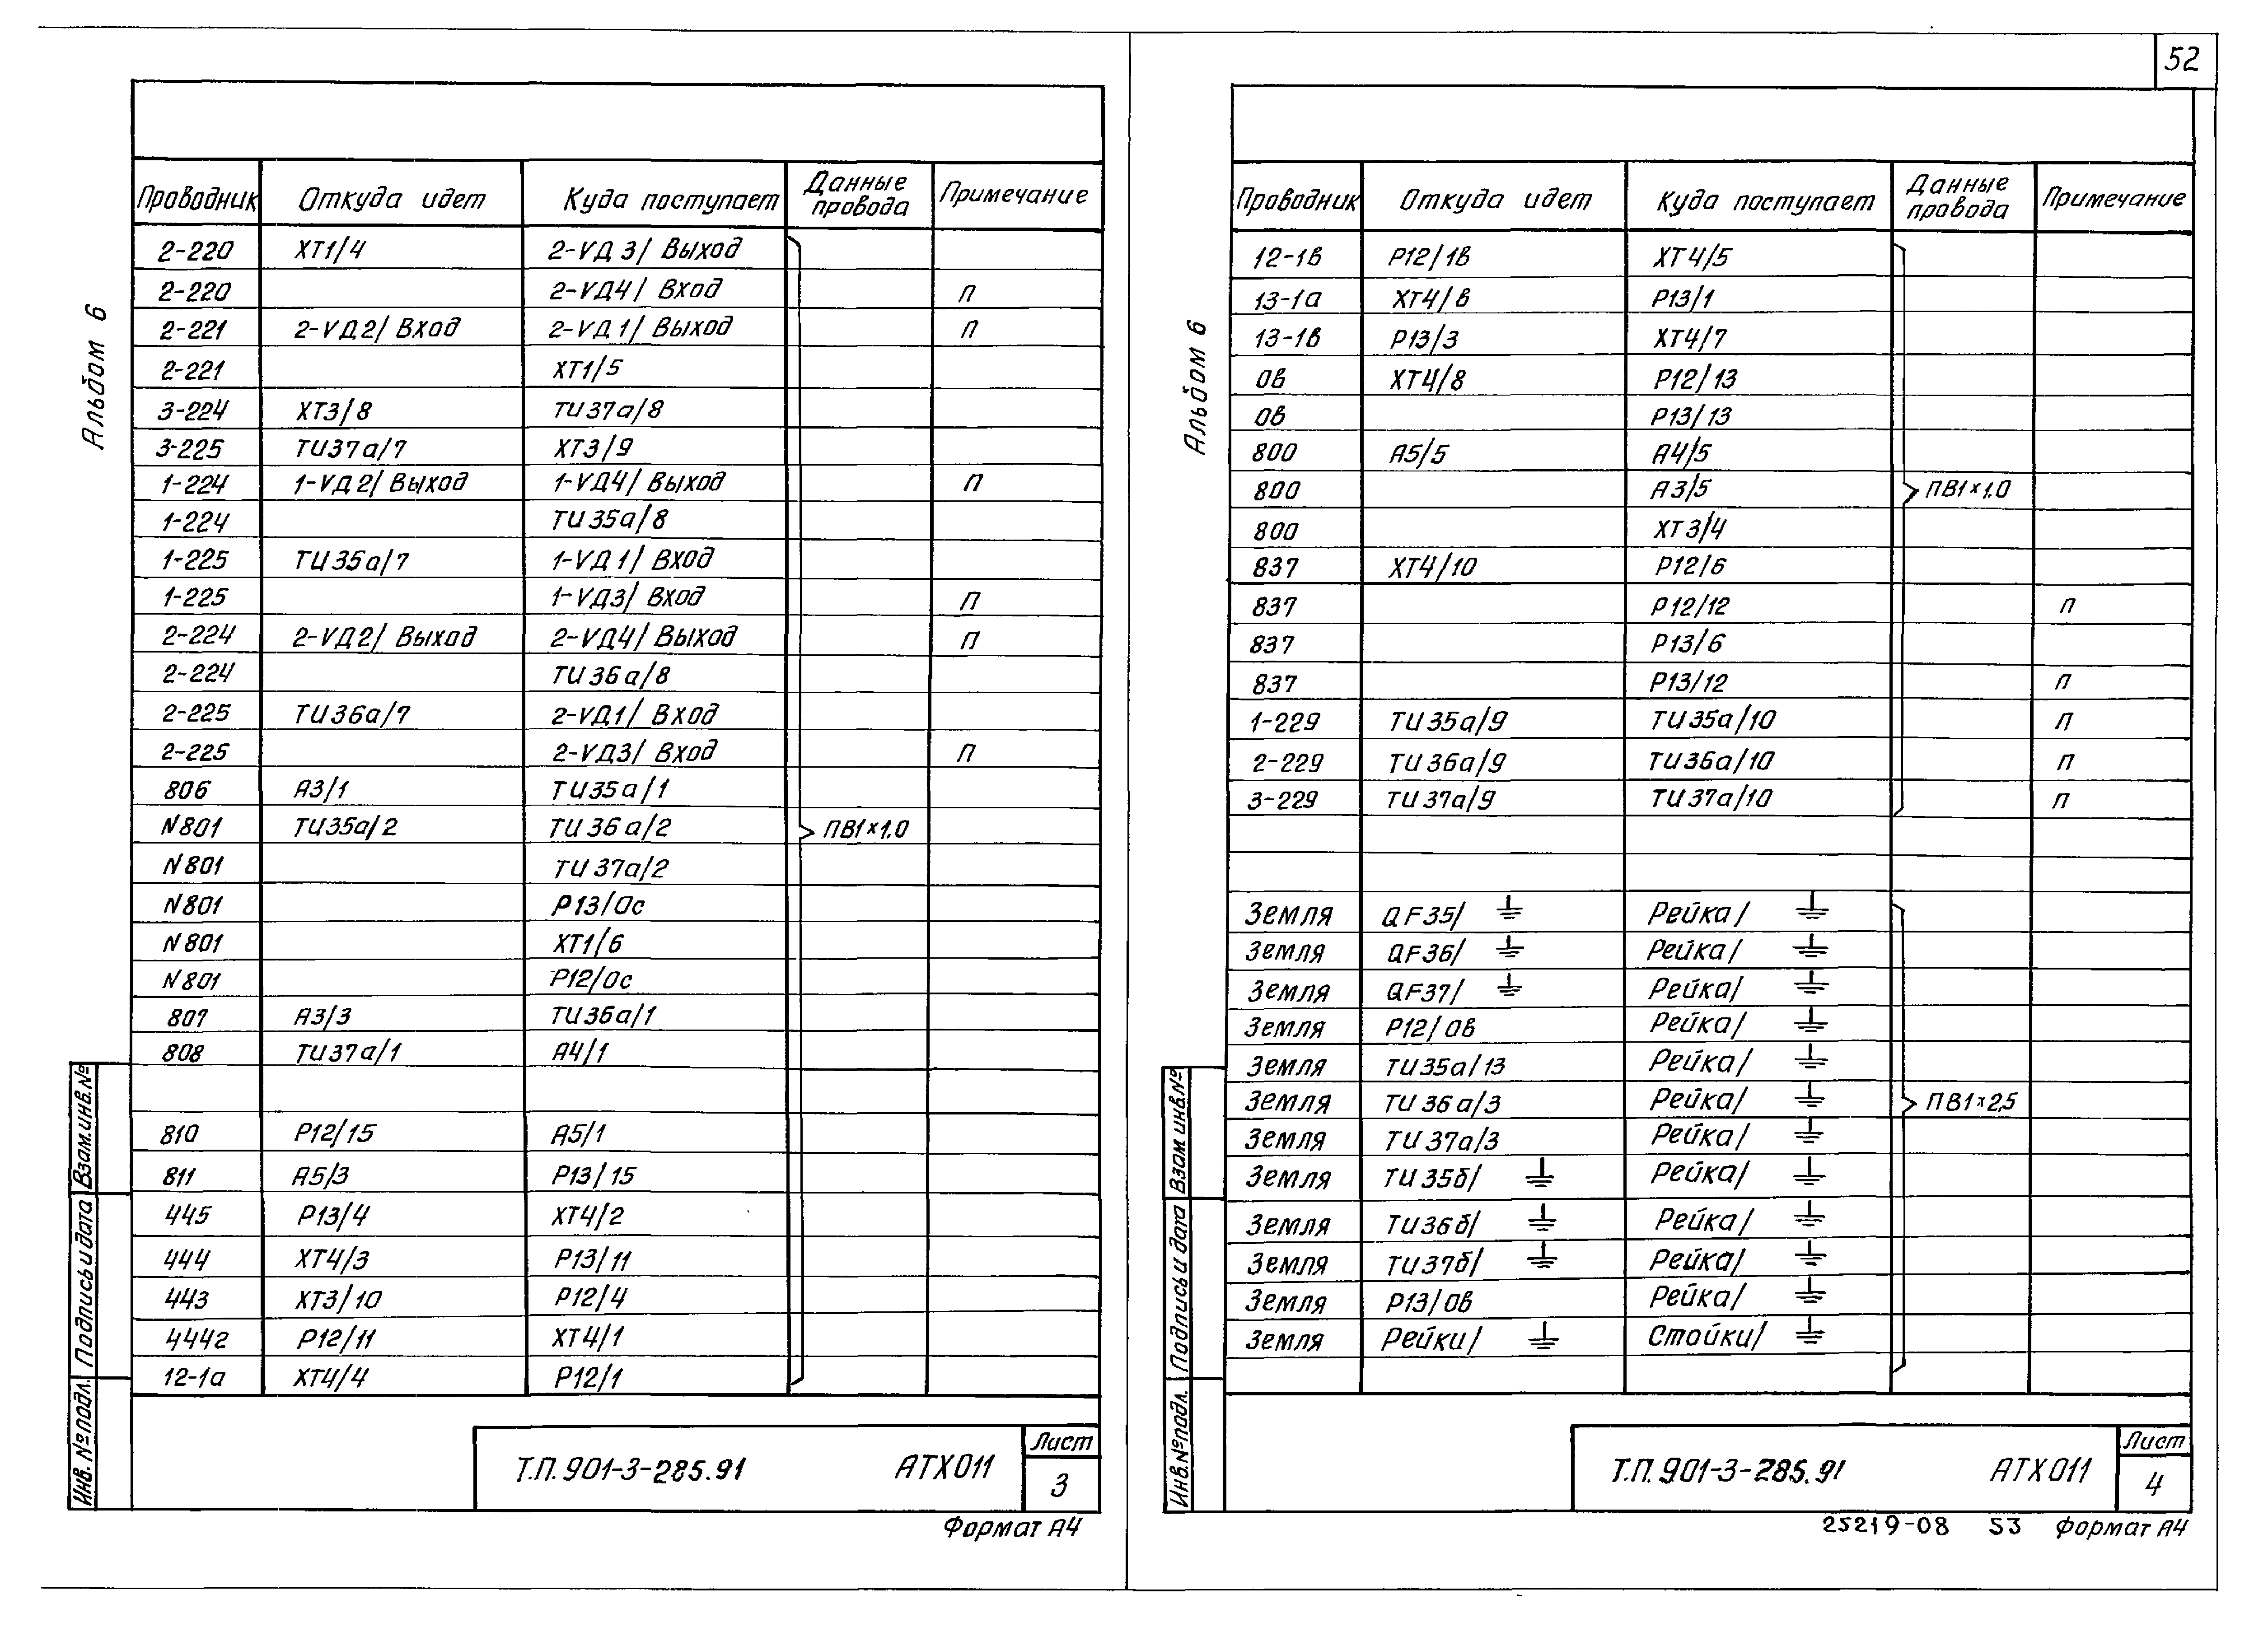 52
Альбом 6
Проводник Откуда идет Куда поступает Данные провода Примечание
2-220 ХТ1/4 2-VД3/ Выход
2-220 2-VД4/ Вход П
2-221 2-VД2/ Вход 2-VД1/ Выход П
2-221 ХТ1/5
3-224 ХТ3/8 ТИ37а/8
3-225 ТИ37а/7 ХТ3/9
1-224 1-VД2/ Выход 1-VД4/ Выход П
1-224 ТИ35а/8
1-225 ТИ35а/7 1-VД1/ Вход
1-225 1-VД3/ Вход П
2-224 2-VД2/ Выход 2-VД4/ Выход П
2-224 ТИ36а/8
2-225 ТИ36а/7 2-VД1/ Вход
2-225 2-VД3/ Вход П
806 А3/1 ТИ35а/1
N801 ТИ35а/2 ТИ36а/2 ПВ1×1,0
N801 ТИ37а/2
N801 Р13/0с
N801 ХТ1/6
N801 Р12/0с
807 А3/3 ТИ36а/1
808 ТИ37а/1 А4/1
810 Р12/15 А5/1
811 А5/3 Р13/15
445 Р13/4 ХТ4/2
444 ХТ4/3 Р13/11
443 ХТ3/10 Р12/4
4442 Р12/11 ХТ4/1
12-1а ХТ4/4 Р12/1
Взам.инв.№
Подпись и дата
Инв. № подл.
Т.П. 901-3-285.91 АТХ011 Лист
3
Формат А4
Альбом 6
Проводник Откуда идет Куда поступает Данные провода Примечание
12-1в Р12/1в ХТ4/5
13-1а ХТ4/в Р13/1
13-1в Р13/3 ХТ4/7
0в ХТ4/8 Р12/13
0в Р13/13
800 А5/5 А4/5
800 А3/5 ПВ1×1,0
800 ХТ3/4
837 ХТ4/10 Р12/6
837 Р12/12 П
837 Р13/6
837 Р13/12 П
1-229 ТИ35а/9 ТИ35а/10 П
2-229 ТИ36а/9 ТИ36а/10 П
3-229 ТИ37а/9 ТИ37а/10 П
Земля QF35/ ⏚ Рейка/ ⏚
Земля QF36/ ⏚ Рейка/ ⏚
Земля QF37/ ⏚ Рейка/ ⏚
Земля Р12/0в Рейка/ ⏚
Земля ТИ35а/13 Рейка/ ⏚
Земля ТИ36а/3 Рейка/ ⏚ ПВ1×2,5
Земля ТИ37а/3 Рейка/ ⏚
Земля ТИ35б/ ⏚ Рейка/ ⏚
Земля ТИ36б/ ⏚ Рейка/ ⏚
Земля ТИ37б/ ⏚ Рейка/ ⏚
Земля Р13/0в Рейка/ ⏚
Земля Рейки/ ⏚ Стойки/ ⏚
Взам инв.№
Подпись и дата
Инв.№ подл.
Т.П. 901-3-285.91 АТХ011 Лист
4
25219-08 53 Формат А4